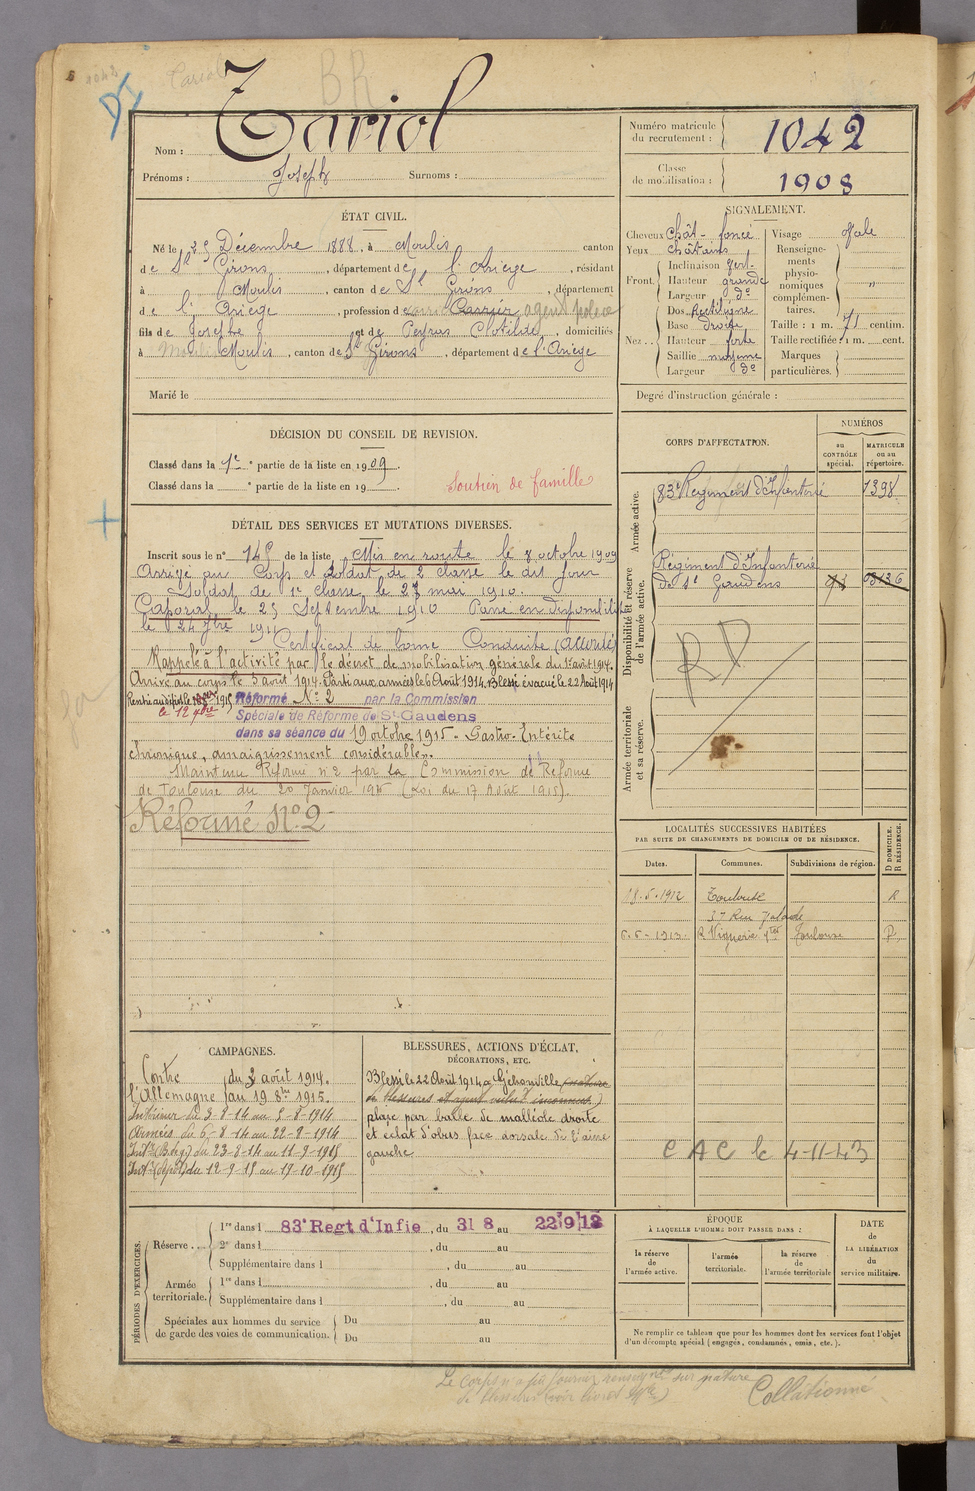 1042
Tariol
BR
Nom : Tariol
Prénoms : Joseph Surnoms :
Numéro matricule du recrutement : 1042
Classe de mobilisation : 1908
ÉTAT CIVIL.
Né le 25 Décembre 1888, à Moulis canton
de St Girons, département de l'Ariège, résidant
à Moulis, canton de St Girons, département
de l'Ariège, profession de Carrier agent police
fils de Joseph et de Peyras Clotilde, domiciliés
à Moulis, canton de St Girons, département de l'Ariège
Marié le
SIGNALEMENT.
Cheveux Chât- foncé
Yeux châtains
Front. Inclinaison vert.
Hauteur grande
Largeur do
Nez. Dos Rectiligne
Base droite
Hauteur forte
Saillie moyenne
Largeur do
Visage ovale
Renseignements physionomiques complémentaires. "
Taille : 1 m. 71 centim.
Taille rectifiée : 1 m. cent.
Marques particulières.
Degré d'instruction générale :
DÉCISION DU CONSEIL DE REVISION.
Classé dans la 1re partie de la liste en 1909.
Classé dans la e partie de la liste en 19 .
Soutien de famille
CORPS D'AFFECTATION.
NUMÉROS
au CONTRÔLE spécial.
MATRICULE ou au répertoire.
Armée active.
83e Régiment d'Infanterie 7398
Disponibilité et réserve de l'armée active.
Régiment d'Infanterie
de St Gaudens
RD
Armée territoriale et sa réserve.
DÉTAIL DES SERVICES ET MUTATIONS DIVERSES.
Inscrit sous le n° 145 de la liste Mis en route le 8 octobre 1909
Arrivé au Corps et soldat de 2 classe le dit jour
Soldat de 1e classe le 27 mai 1910.
Caporal le 25 Septembre 1910 Passé en disponibilité
le 24 7bre 1911
Certificat de bonne Conduite (Accordé)
Rappelé à l'activité par le décret de mobilisation générale du 1er août 1914.
Arrivé au corps le 3 août 1914. Parti aux armées le 6 Août 1914. Blessé évacué le 22 Août 1914
Rentré au dépôt le 1915
le 12 7bre
Réformé N° 2 par la Commission
Spéciale de Réforme de St-Gaudens
dans sa séance du 19 octobre 1915 - Gastro-Entérite
chronique, amaigrissement considérable".
Maintenu Réformé n°2 par la Commission de Réforme
de Toulouse du 20 Janvier 1916 (Loi du 17 Août 1915).
Réformé N°2
LOCALITÉS SUCCESSIVES HABITÉES
PAR SUITE DE CHANGEMENTS DE DOMICILE OU DE RÉSIDENCE.
Dates. Communes. Subdivisions de région. D DOMICILE. R RÉSIDENCE.
15.5.1912 Toulouse R
37 Rue
6-5-1913 Toulouse
CAMPAGNES.
Contre l'Allemagne du 3 août 1914.
au 19 8bre 1915.
Intérieur du 3-8-14 au 5-8-1914
Armées du 6-8-14 au 22-8-1914
Intr (Bstge) du 23-8-14 au 11-9-1915
Intr (Dpôt) du 12-9-15 au 19-10-1915
BLESSURES, ACTIONS D'ÉCLAT,
DÉCORATIONS, ETC.
Blessé le 22 Août 1914 à Géhonville (nature
de blessures et agent vulnt inconnus)
plaie par balle de malléole droite
et éclat d'obus face dorsale de l'aine
gauche
CAC le 4-11-43
PÉRIODES D'EXERCICES.
Réserve. 1re dans l 83e Regt d'Infie, du 31 8 au 22 9 12
2e dans l , du au
Supplémentaire dans l , du au
Armée territoriale. 1re dans l , du au
Supplémentaire dans l , du au
Spéciales aux hommes du service de garde des voies de communication. Du au
Du au
ÉPOQUE
À LAQUELLE L'HOMME DOIT PASSER DANS :
la réserve de l'armée active.
l'armée territoriale.
la réserve de l'armée territoriale
DATE de LA LIBÉRATION du service militaire.
Ne remplir ce tableau que pour les hommes dont les services font l'objet
d'un décompte spécial (engagés, condamnés, omis, etc.).
Le Corps n'a pu fournir renseignt sur nature
de blessures (voir livret Mle)
Collationné